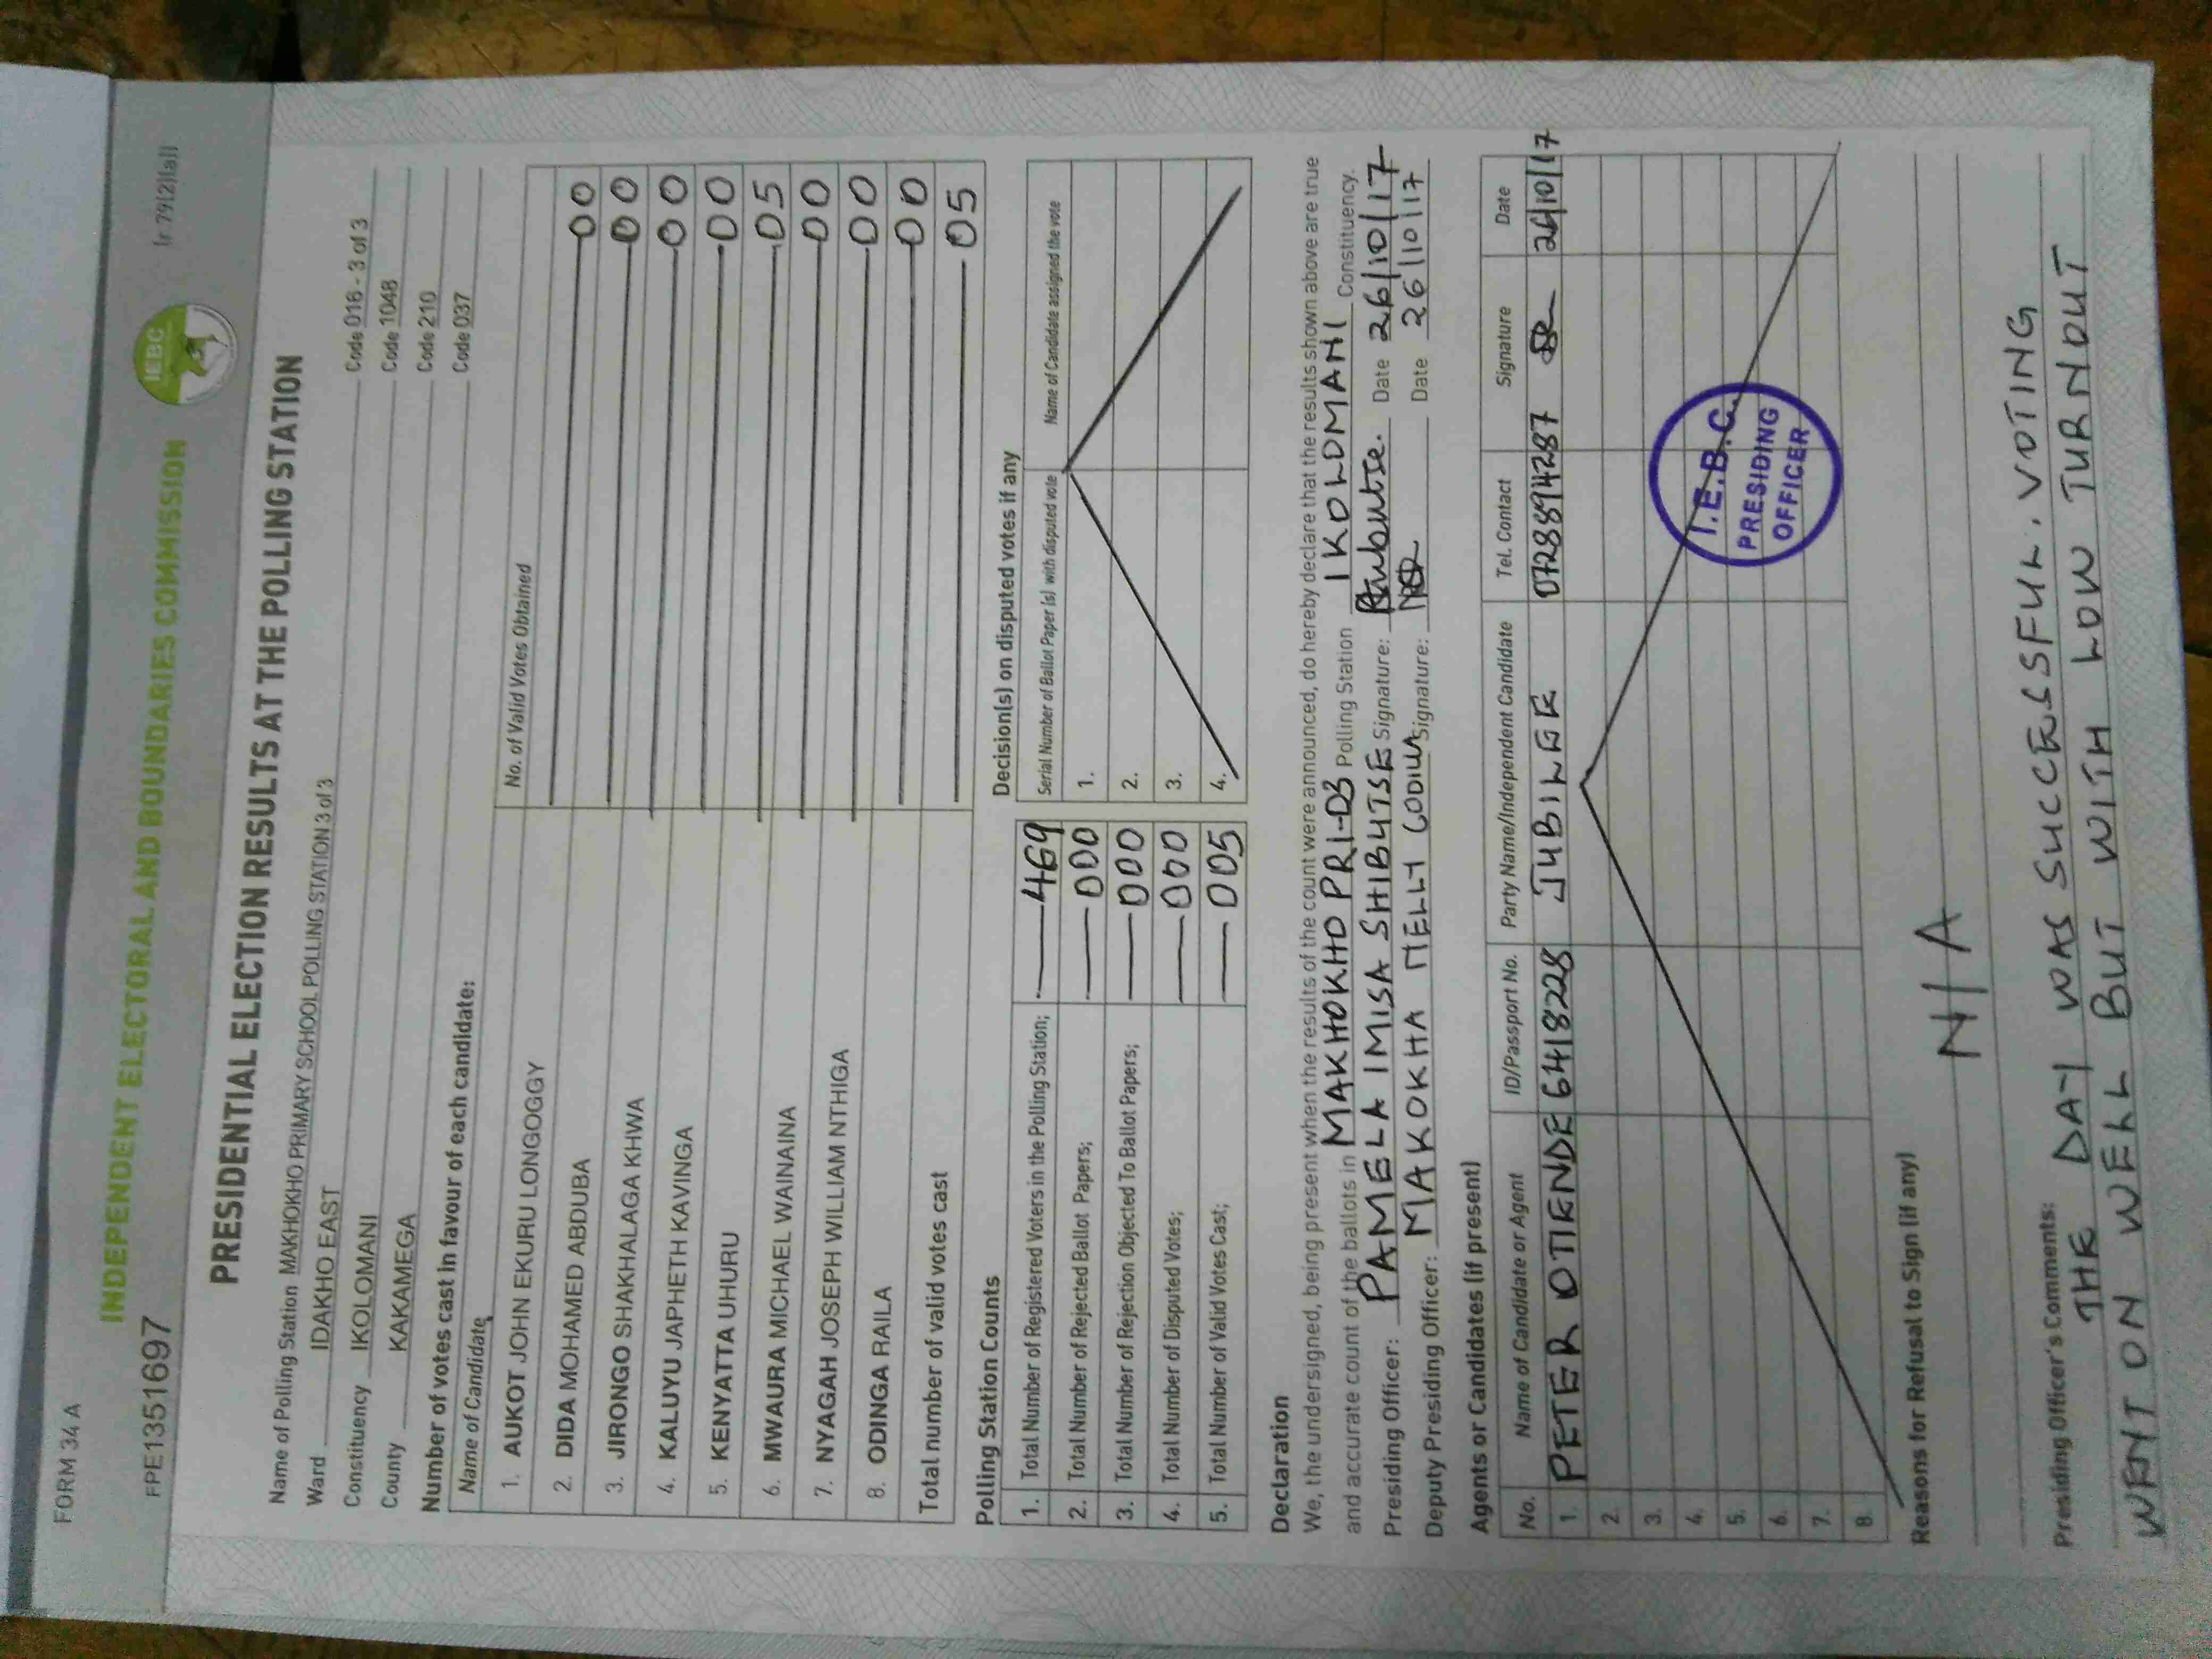 FORM 34 A
INDEPENDENT ELECTORAL AND BOUNDARIES COMMISSION
IEBC
(r 79(2)(a))
FPE1351697
PRESIDENTIAL ELECTION RESULTS AT THE POLLING STATION
Name of Polling Station MAKHOKHO PRIMARY SCHOOL POLLING STATION 3 of 3 Code 018 - 3 of 3
Ward IDAKHO EAST Code 1048
Constituency IKOLOMANI Code 210
County KAKAMEGA Code 037
Number of votes cast in favour of each candidate:
Name of Candidate No. of Valid Votes Obtained
1. AUKOT JOHN EKURU LONGOGGY 00
2. DIDA MOHAMED ABDUBA 00
3. JIRONGO SHAKHALAGA KHWA 00
4. KALUYU JAPHETH KAVINGA 00
5. KENYATTA UHURU 05
6. MWAURA MICHAEL WAINAINA 00
7. NYAGAH JOSEPH WILLIAM NTHIGA 00
8. ODINGA RAILA 00
Total number of valid votes cast 05
Polling Station Counts
1. Total Number of Registered Voters in the Polling Station; 469
2. Total Number of Rejected Ballot Papers; 000
3. Total Number of Rejection Objected To Ballot Papers; 000
4. Total Number of Disputed Votes; 000
5. Total Number of Valid Votes Cast; 005
Decision(s) on disputed votes if any
Serial Number of Ballot Paper (s) with disputed vote Name of Candidate assigned the vote
1.
2.
3.
4.
Declaration
We, the undersigned, being present when the results of the count were announced, do hereby declare that the results shown above are true
and accurate count of the ballots in MAKHOKHO PRI-03 Polling Station IKOLOMANI Constituency.
Presiding Officer: PAMELA IMISA SHIBUTSE Signature: Date 26/10/17
Deputy Presiding Officer: MAKOKHA NELLY Signature: Date 26/10/17
Agents or Candidates (if present)
No. Name of Candidate or Agent ID/Passport No. Party Name/Independent Candidate Tel. Contact Signature Date
1. PETER OTIENDE 6418228 JUBILEE 0728894287 26/10/17
2.
3.
4.
5.
6.
7.
8.
I.E.B.C.
PRESIDING
OFFICER
Reasons for Refusal to Sign (if any)
N/A
Presiding Officer's Comments:
THE DAY WAS SUCCESSFUL. VOTING
WENT ON WELL BUT WITH LOW TURNOUT